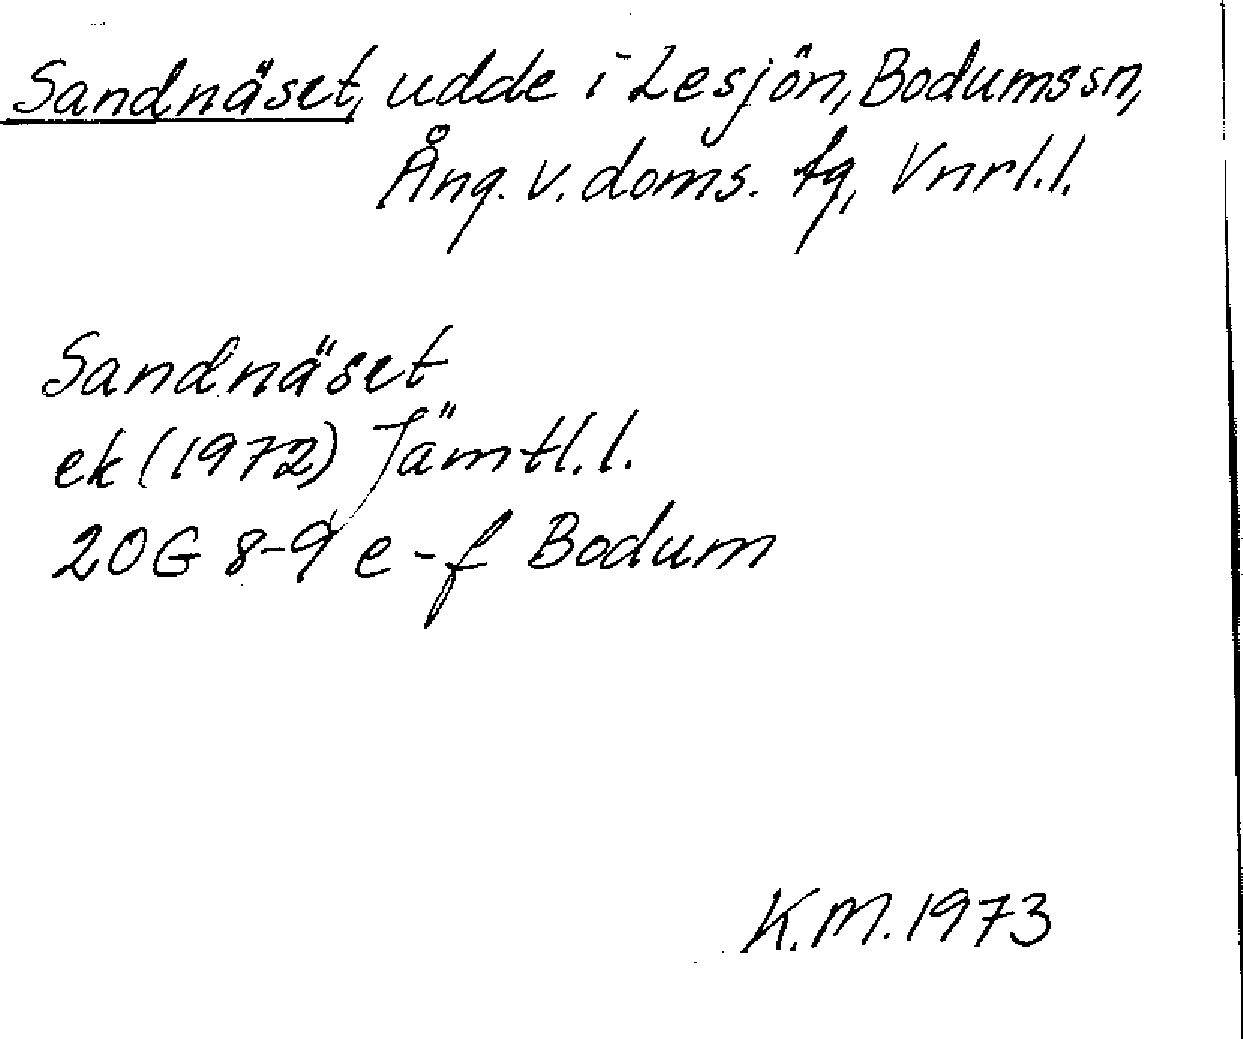 Sandnäset, udde i Lesjön, Bodums sn,
Ång. v. doms. tg, Vnrl.l.
Sandnäset
ek (1972) Jämtl.l.
20G 8-9 e-f Bodum
K.M. 1973